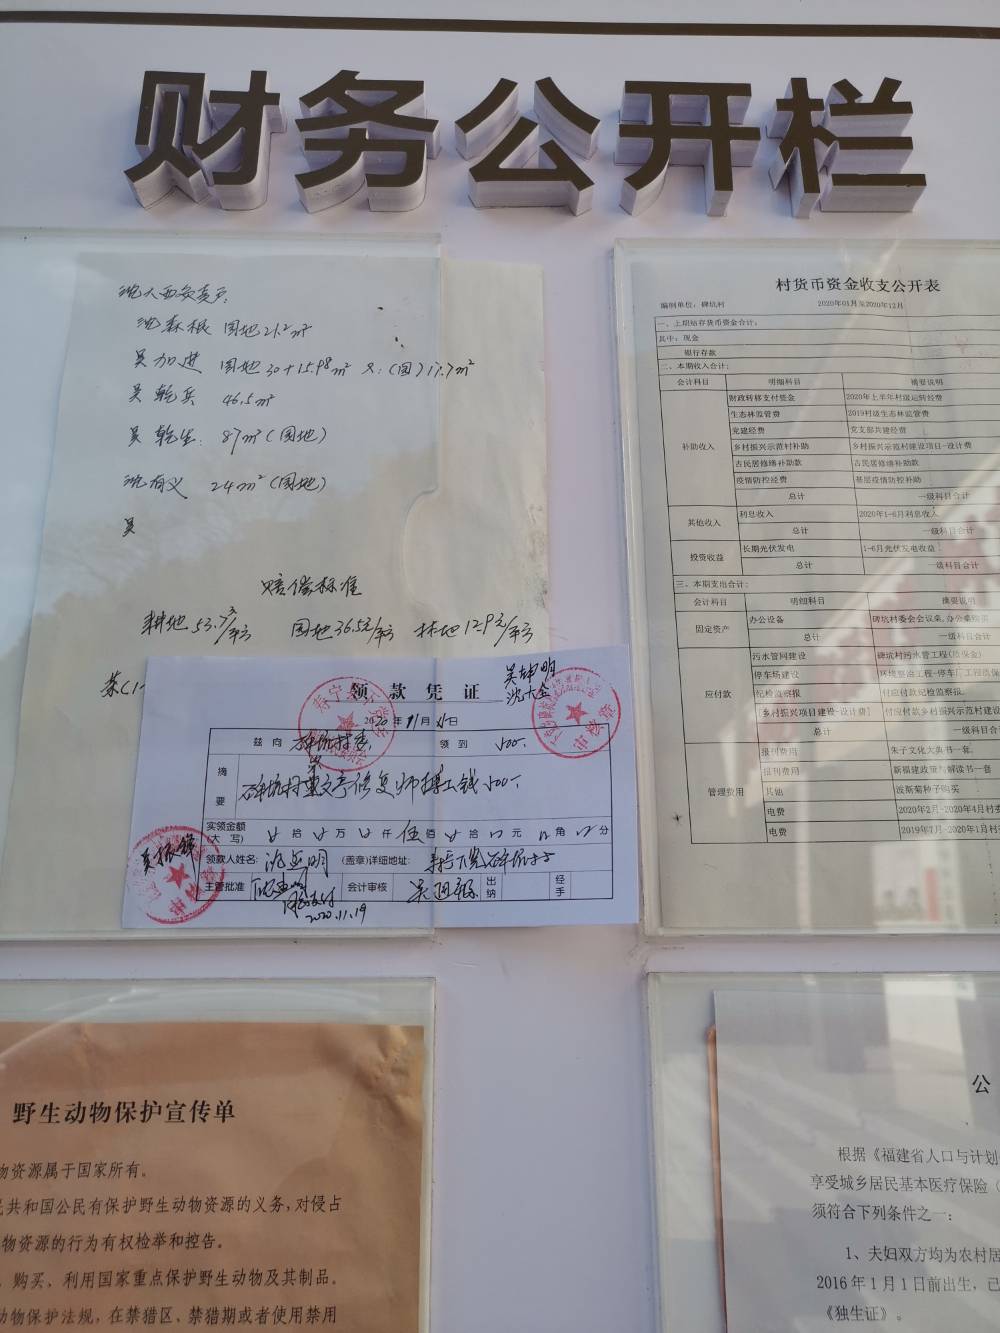 财务公开栏
沈森根 园地21.2m²
吴加进 园地30+15.98m² 又:(园)17.7m²
吴乾兵 46.5m²
吴乾生: 87m²(园地)
沈有义 24m²(园地)
吴
赔偿标准
耕地53.7³/平方 园地36.5元/平方 林地12.9元/平方
茶(1-
吴坤明
沈大全
领款凭证
2020年11月15日
兹向 碑坑村委 领到 500.
摘要
碑坑村 文亭修复师傅工钱500
实领金额
(大写) 拾 万 仟 伍 佰 拾 元 角 分
领款人姓名: (盖章)详细地址:
主管批准 会计审核 出纳 经手
同意支付
2020.11.19
吴振锋
村货币资金收支公开表
编制单位: 碑坑村 2020年01月至2020年12月
一、上期结存货币资金合计:
其中: 现金
银行存款
二、本期收入合计:
会计科目 明细科目 摘要说明
补助收入
财政转移支付资金 2020年上半年村级运转经费
生态林监管费 2019村级生态林监管费
党建经费 党支部共建经费
乡村振兴示范村补助 乡村振兴示范村建设项目-设计费
古民居修缮补助款 古民居修缮补助
疫情防控经费 基层疫情防控补助
总计 一级科目合计
其他收入
利息收入 2020年1-6月利息收入
总计 一级科目合计
投资收益
长期光伏发电 1-6月光伏发电收益
总计 一级科目合计
三、本期支出合计:
会计科目 明细科目 摘要说明
固定资产
办公设备 碑坑村委会会议桌,办公桌购买
总计 一级科目合计
应付款
污水管网建设 碑坑村污水管工程(质保金)
停车场建设 环境整治工程-停车厂工程质保
纪检监察报 付应付款纪检监察报.
乡村振兴项目建设-设计费 付应付款乡村振兴示范村建设
总计 一级科目合计
管理费用
报刊费用 朱子文化大典书一套.
报刊费用 新福建政策与解读书一套
其他 波斯菊种子购买
电费 2020年2月-2020年4月村委
电费 2019年7月-2020年1月村
野生动物保护宣传单
物资源属于国家所有。
民共和国公民有保护野生动物资源的义务,对侵占
物资源的行为有权检举和控告。
、购买、利用国家重点保护野生动物及其制品。
动物保护法规,在禁猎区、禁猎期或者使用禁用
公
根据《福建省人口与计划
享受城乡居民基本医疗保险(
须符合下列条件之一:
1、夫妇双方均为农村居
2016年1月1日前出生,已
《独生证》。